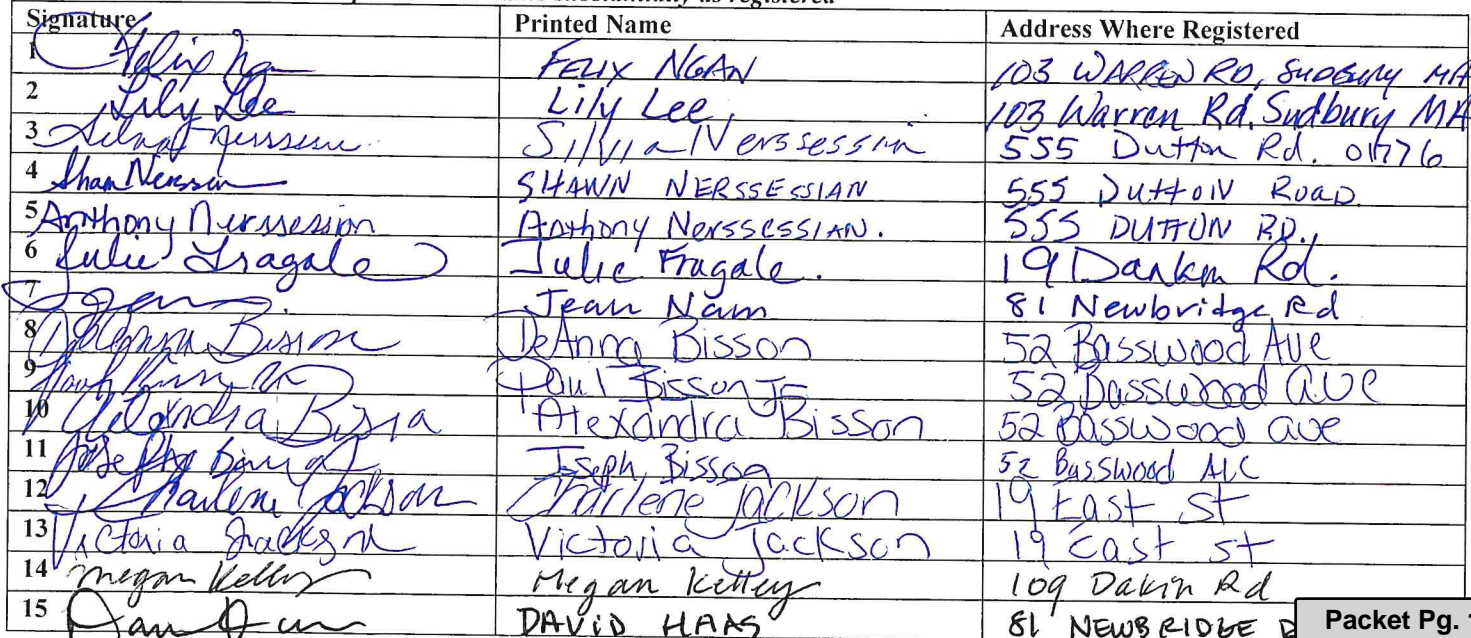 substantially as registered
Signature Printed Name Address Where Registered
1 Felix Ngan FELIX NGAN 103 WARREN RD, SUDBURY MA
2 Lily Lee Lily Lee 103 Warren Rd. Sudbury MA
3 Silvia Nerssessian 555 Dutton Rd. 01776
4 Shawn Nerssessian SHAWN NERSSESSIAN 555 DUTTON ROAD
5 Anthony Nerssessian Anthony NERSSESSIAN. 555 DUTTON RD.,
6 Julie Fragale Julie Fragale. 19 Rd.
7 Jean Nam 81 Newbridge Rd
8 DeAnna Bisson DeAnna Bisson 52 Basswood AVE
9 Paul Bisson Jr 52 Basswood ave
10 Alexandra Bisson Alexandra Bisson 52 Basswood ave
11 Joseph Bisson 52 Basswood
12 Charlene Jackson Charlene Jackson 19 East St
13 Victoria Jackson Victoria Jackson 19 East st
14 Megan Kelley Megan Kelley 109 Dakin Rd
15 DAVID HAAS 81 NEWBRIDGE
Packet Pg. 1